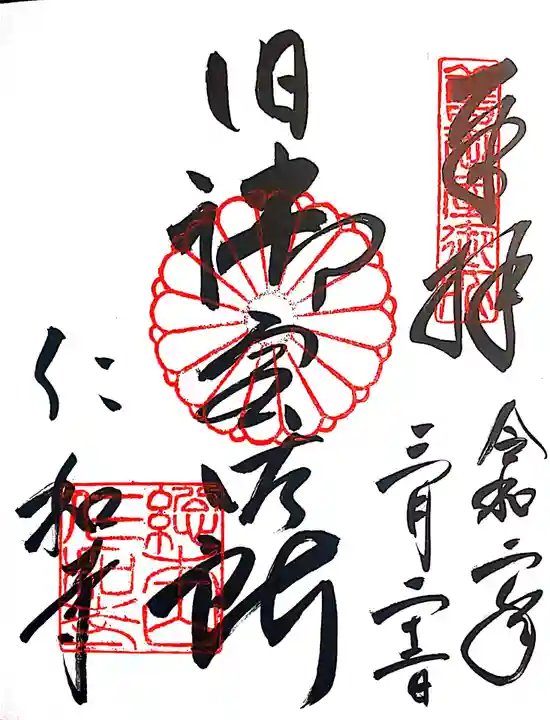 奉拝
令和二年
三月二十三日
旧御室御所
仁和寺
総本山仁和寺